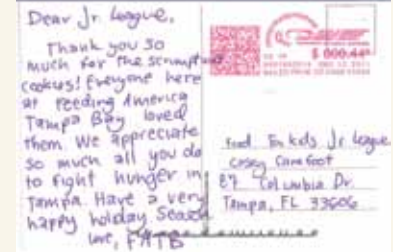 Dear Jr. League,
Thank you so
much for the scrumptous
cookies! Everyone here
at Feeding America
Tampa Bay loved
them. We appreciate
so much all you do
to fight hunger in
Tampa. Have a very
happy holiday Season
love, FATB
$ 000.44
Food For kids Jr League
Casey Carefoot
87 Columbia Dr.
Tampa, FL 33606